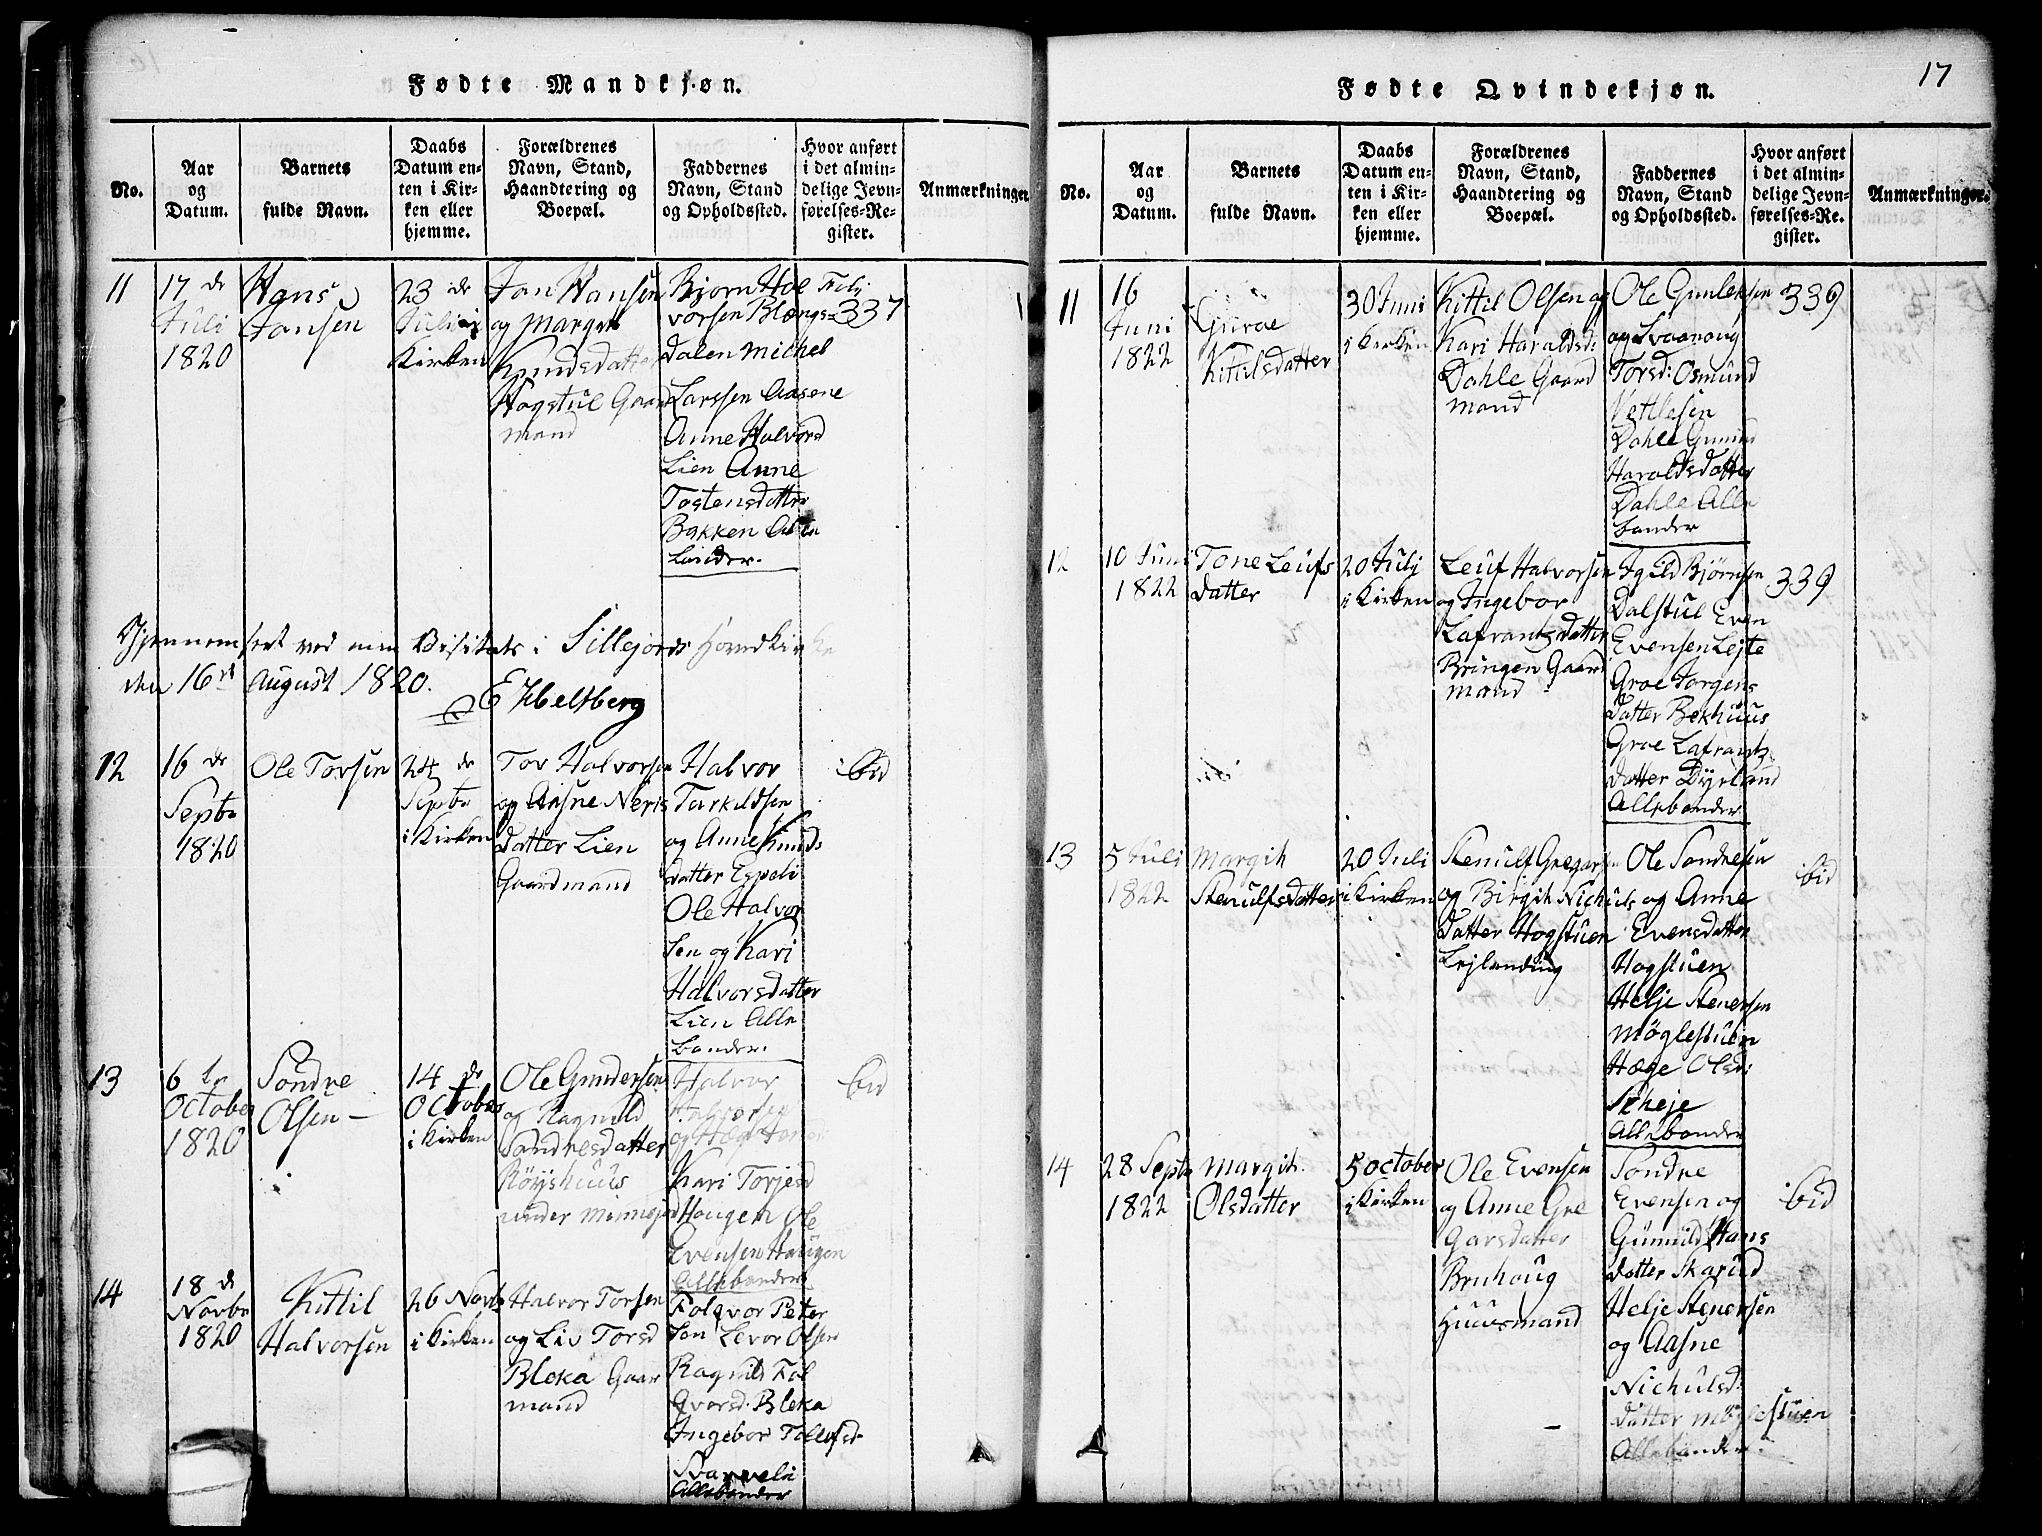 Fødte Mandkjøn.
No.
Aar
og
Datum.
Barnets
fulde Navn.
Daabs
Datum en-
ten i Kir-
ken eller
hjemme.
Forældrenes
Navn, Stand,
Haandtering og
Boepæl.
Faddernes
Navn, Stand
og Opholdssted.
Hvor anført
i det almin-
delige Jevn-
førelses-Re-
gister.
Anmærkninger
11
17 de
Juli
1820
Hans
Jonsen
23 de
Juli i
Kirken
Jon Hansen
og Margit
Knudsdatter
Hogstul Gaard
mand
Bjorn Hol
vorsen Blengs=
dalen Michel
Larssen Aasene
Anne Halvorsd
Lien Anne
Tostensdatter
Bakken Alle
bønder.
Foli
337
Gjennemseet ved min Visitats i Sillejords Hovedkirke
den 16de August 1820.
12
16 de
Septbr
1820
Ole Torsen
24 de
Septbr
i Kirken
Tov Halvorsen
og Aasne Neris
datter Lien
Gaardmand
Halvor
Tarkildsen
og Anne Knuds
datter Espeli
Ole Halvor
sen og Kari
Halvorsdatter
Lien Alle
bonder.
ibid
13
6 te
October
1820
Sondre
Olsen —
14 de
October
i Kirken
Ole Gundersen
og Ragnild
Sondresdatter
Röyshuus
under
Halvor
Halvorsen
Kari Torjesd
Haugen Ole
Evensen Haugen
Alle bonder
ibid
14
18 de
Novbr
1820
Kittil
Halvorsen
26 Novbr
i Kirken
Halvor Torsen
og Liv Torsd
Bleka Gaar
mand
Folqvor Peter
sen Levor Olsen
Ragnild Fol
qvorsd. Bleka
Ingebor Tollefsd
Svarveli
Alle bonder
17
Fødte Qvindekjøn.
No.
Aar
og
Datum.
Barnets
fulde Navn.
Daabs
Datum en-
ten i Kir-
ken eller
hjemme.
Forældrenes
Navn, Stand,
Haandtering og
Boepæl.
Faddernes
Navn, Stand
og Opholdssted.
Hvor anført
i det almin-
delige Jevn-
førelses-Re-
gister.
Anmærkninger.
11
16
Juni
1822
Guroe
Kittilsdatter
30 Juni
i Kirken
Kittil Olsen og
Kari Haraldsd:
Dahle Gaard
mand
Ole Gunleksen
og Svaanoug
Torsd: Osmund
Vetlesen
Dahle Gunild
Haroldsdatter
Dahle Alle
bonder
339
12
10 Juni
1822
Tone Leufs
datter
20 Julj
i Kirken
Leuf Halvorsen
og Ingebor
Lafrantsdatter
Bringen Gaard
mand
Igild Bjørnsen
Dalstul Even
Evensen Lejte
Groe Jorgens
datter Bekhuus
Groe Lafrants
datter Dyrland
Alle bonder
339
13
5 Juli
1822
Margit
Stenulfsdatter
20 Juli
i Kirken
Stenulf Gregarsen
og Birgit Nichuls
datter Hogstuen
Lejlending
Ole Sondresen
og Anne
Evensdatter
Hogstuen
Helje Stenersen
Möglestuen
Hæge Olsd:
Skheje
Alle bonder
ibid
14
28 Septbr
1822
Margit
Olsdatter
5 October
i Kirken
Ole Evensen
og Anne Gre
garsdatter
Bruhoug
Huusmand
Sondre
Evensen og
Gunnild Hans
datter Skarud
Helje Stenersen
og Aasne
Nichulsd:
datter Möglestuen
Alle bønder.
ibid